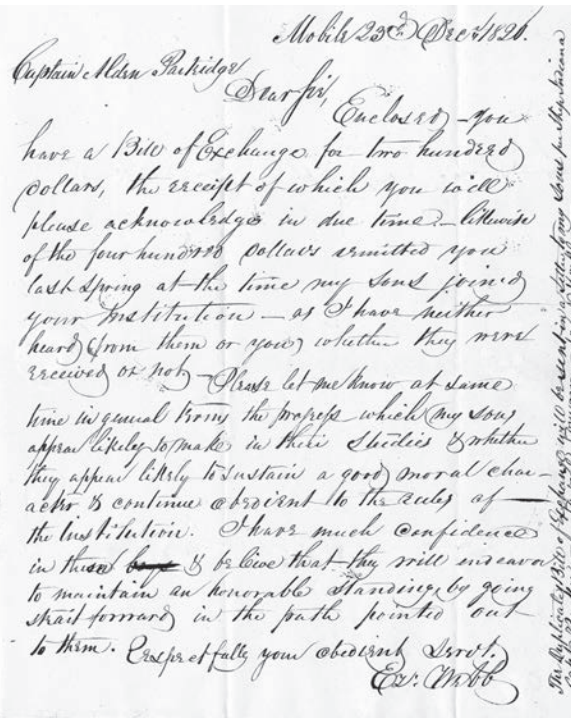 Mobile 23d Decr 1820.
Captain Alden Partridge
Dear Sir,
Enclosed you
have a Bill of Exchange for two hundred
dollars, the receipt of which you will
please acknowledge in due time. - likewise
of the four hundred dollars remitted you
last spring at the time my sons joined
your Institution - as I have neither
heard (from them or you) whether they were
received or not - Please let me know at same
time in general terms the progress which my sons
appear likely to make in their studies & whether
they appear likely to sustain a good moral char-
acter & continue obedient to the rules of
the Institution. I have much confidence
in them & believe that they will endeavor
to maintain an honorable standing by going
strait forward in the path pointed out
to them. Respectfully your obedient Servt.
Ezr. Webb
The Duplicate Bill of Exchange will be sent in a letter to my Sons pr Ship Indiana